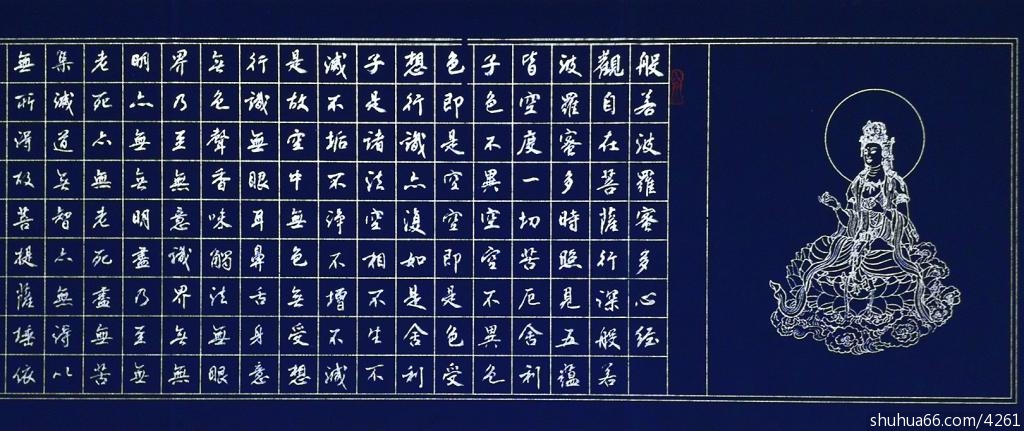 般若波羅蜜多心経
觀自在菩薩行深般若
波羅蜜多時照見五蘊
皆空度一切苦厄舍利
子色不異空空不異色
色即是空空即是色受
想行識亦復如是舍利
子是諸法空相不生不
滅不垢不淨不增不減
是故空中無色無受想
行識無眼耳鼻舌身意
無色聲香味觸法無眼
界乃至無意識界無無
明亦無無明盡乃至無
老死亦無老死盡無苦
集滅道無智亦無得以
無所得故菩提薩埵依
shuhua66.com/4261